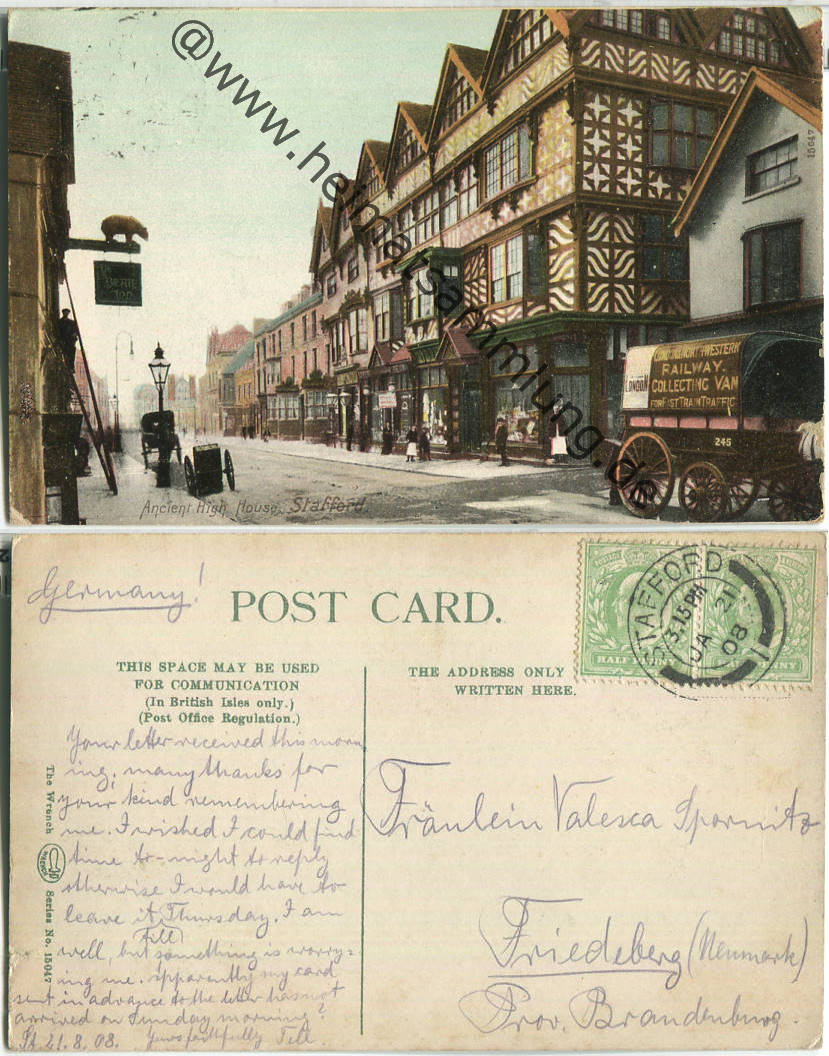 @www.heimatsammlung.de
15047
BEAR
INN
LONDON & NORTH WESTERN
RAILWAY.
COLLECTING VAN
FOR FAST TRAIN TRAFFIC
LONDON
245
Ancient High House, Stafford.
Germany!
POST CARD.
THIS SPACE MAY BE USED
FOR COMMUNICATION
(In British Isles only.)
(Post Office Regulation.)
THE ADDRESS ONLY
WRITTEN HERE.
HALFPENNY
STAFFORD
3.15 PM
JA 21
08
1
The Wrench
WRENCH
Series No. 15047
Your letter received this morn
ing, many thanks for
your kind remembering
me. I wished I could find
time to-night to reply
otherwise I would have to
leave it till Thursday. I am
well, but something is worry=
ing me. Apparently my card
sent in advance to the letter has not
arrived on Sunday morning?
St. 21.8.08. Yours faithfully Till.
Fräulein Valesca Spornitz
Friedeberg (Neumark)
Prov. Brandenburg.